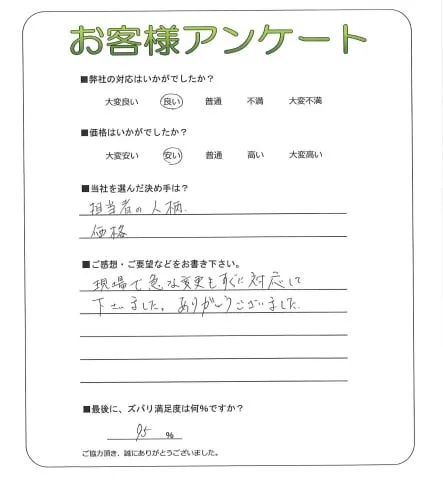 お客様アンケート
■弊社の対応はいかがでしたか？
大変良い 良い 普通 不満 大変不満
■価格はいかがでしたか？
大変安い 安い 普通 高い 大変高い
■当社を選んだ決め手は？
担当者の人柄.
価格
■ご感想・ご要望などをお書き下さい。
現場で急な変更もすぐに対応して
下さいました。ありがとうございました.
■最後に、ズバリ満足度は何%ですか？
95 %
ご協力頂き、誠にありがとうございました。